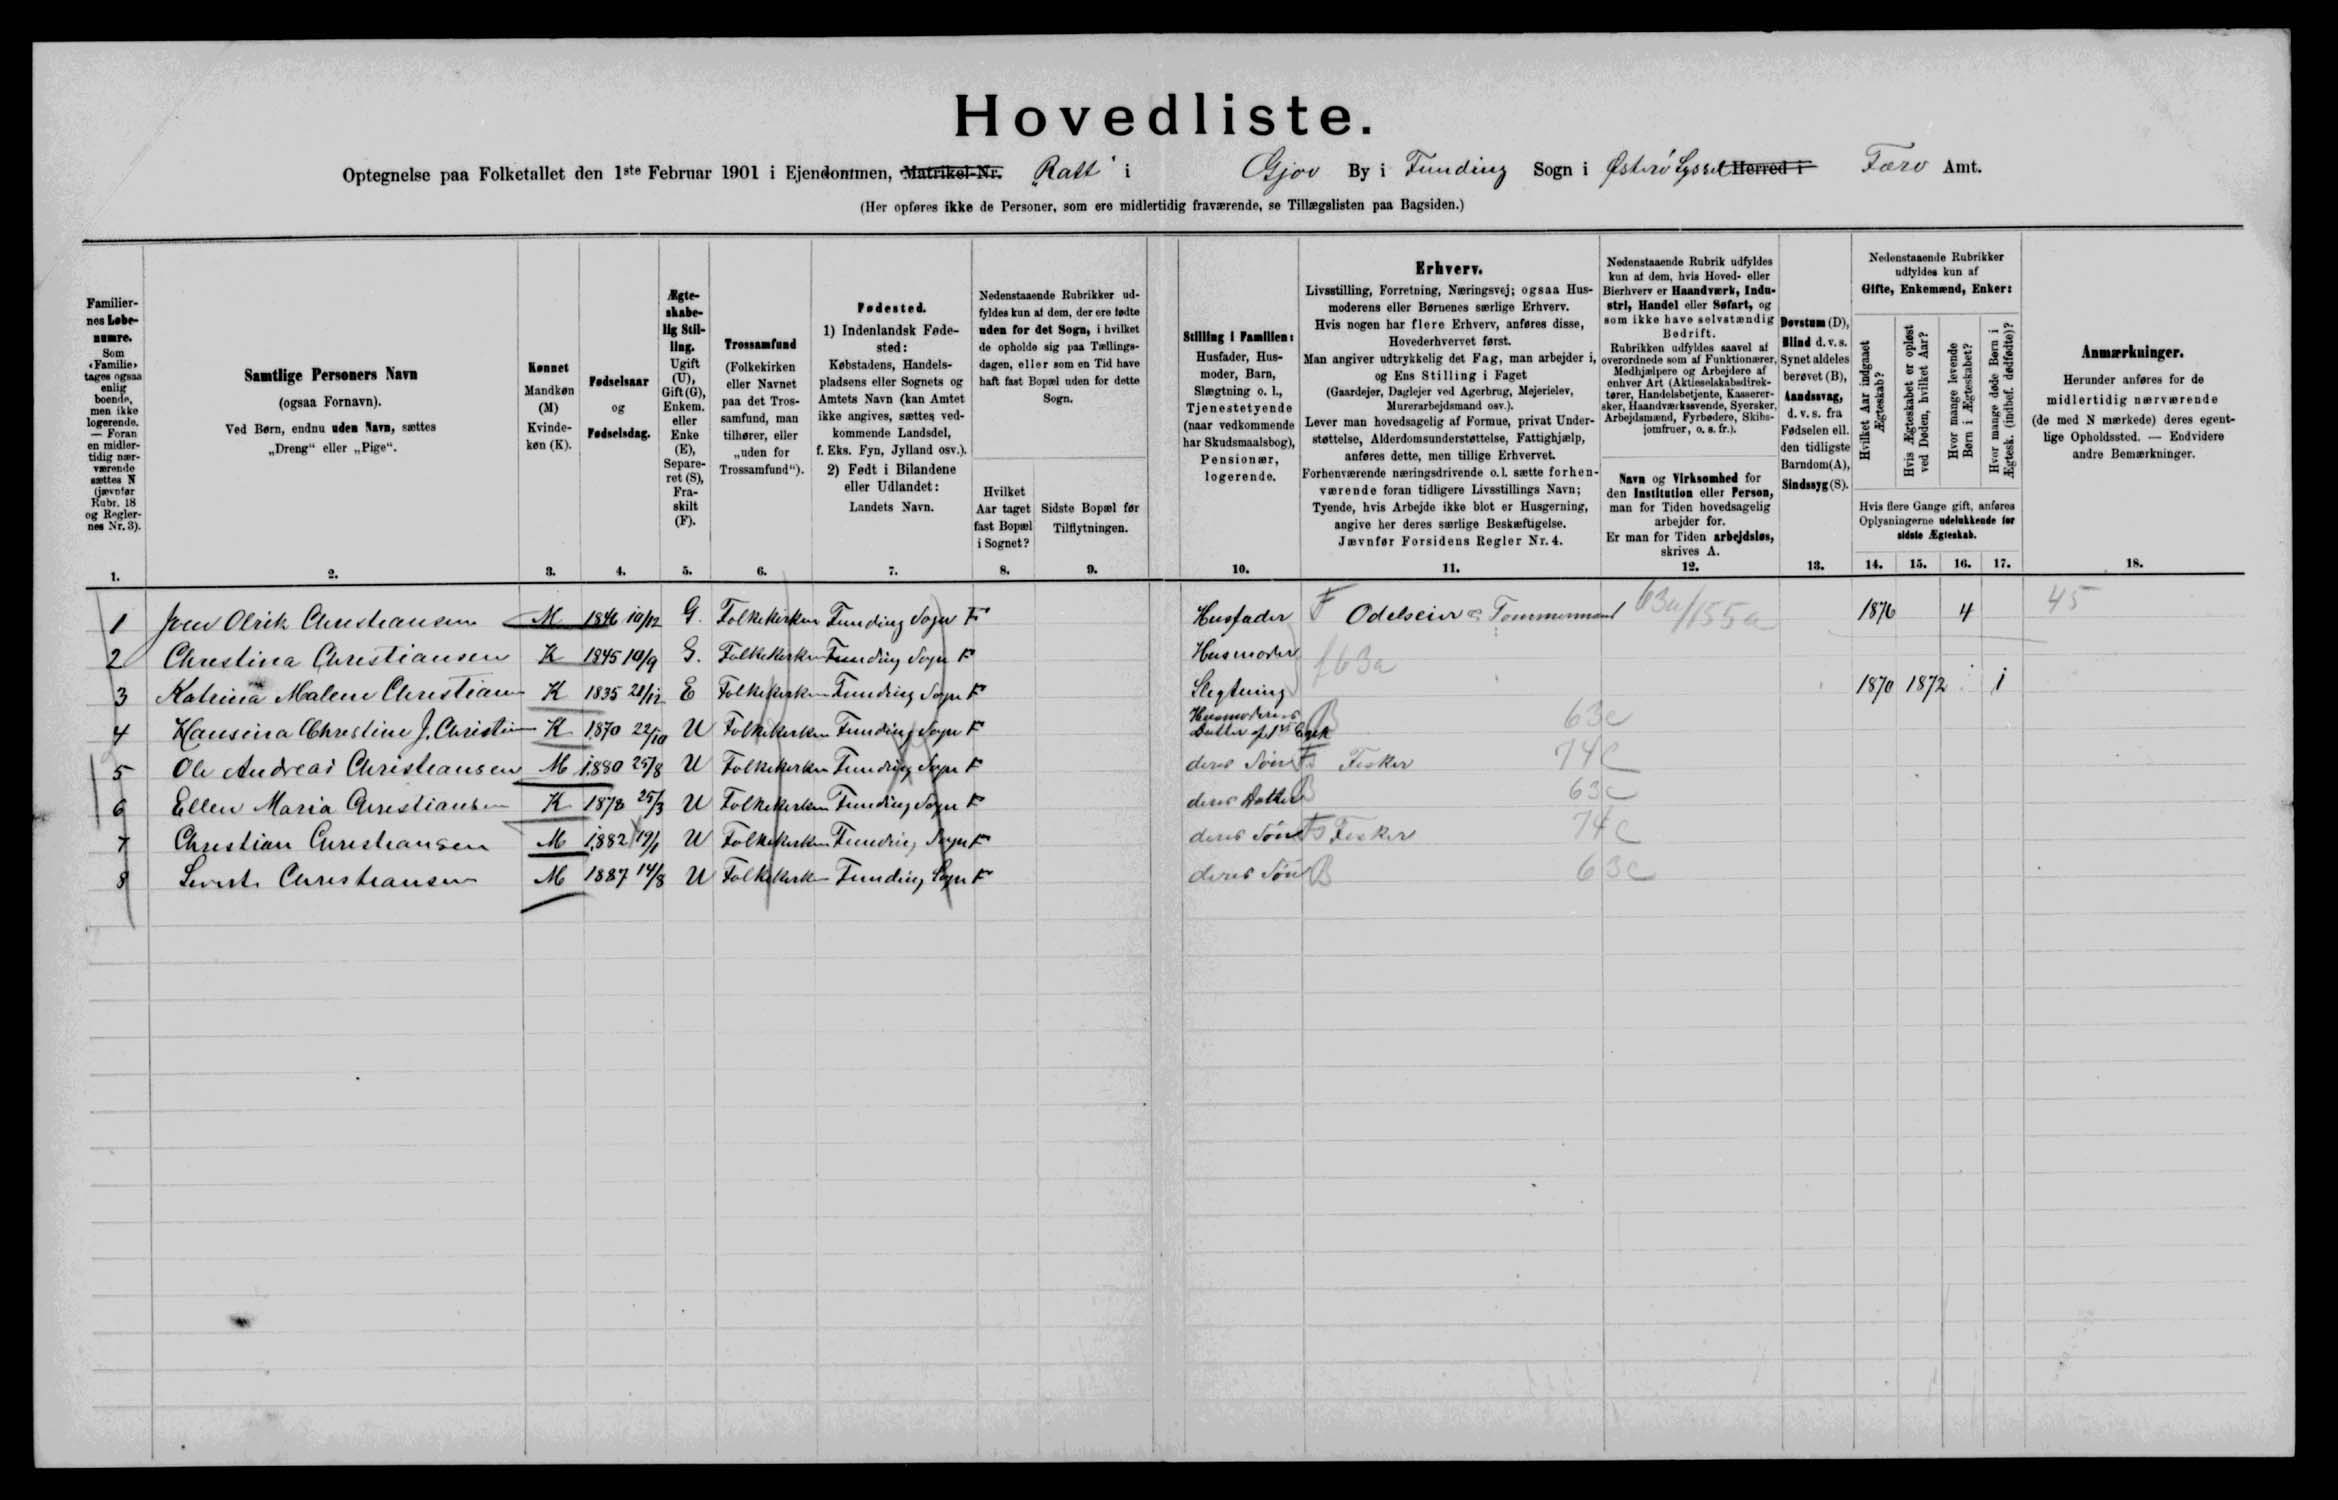 Hovedliste.
Optegnelse paa Folketallet den 1ste Februar 1901 i Ejendommen, Matrikel-Nr. "Ratt" i Gjov By i Funding Sogn i Østerø Syssel Herred i Færø Amt.
(Her opføres ikke de Personer, som ere midlertidig fraværende, se Tillægslisten paa Bagsiden.)
Familiernes Løbenumre.
Som «Familie» tages ogsaa enlig boende, men ikke logerende. — Foran en midlertidig nærværende sættes N (jævnfør Rubr. 18 og Reglernes Nr. 3).
1.
Samtlige Personers Navn
(ogsaa Fornavn).
Ved Børn, endnu uden Navn, sættes
„Dreng“ eller „Pige“.
2.
Kønnet
Mandkøn (M)
Kvindekøn (K).
3.
Fødselsaar
og
Fødselsdag.
4.
Ægteskabelig Stilling.
Ugift (U), Gift (G), Enkem. eller Enke (E), Separeret (S), Fraskilt (F).
5.
Trossamfund
(Folkekirken eller Navnet paa det Trossamfund, man tilhører, eller „uden for Trossamfund“).
6.
Fødested.
1) Indenlandsk Fødested:
Købstadens, Handelspladsens eller Sognets og Amtets Navn (kan Amtet ikke angives, sættes vedkommende Landsdel, f. Eks. Fyn, Jylland osv.).
2) Født i Bilandene eller Udlandet:
Landets Navn.
7.
Nedenstaaende Rubrikker udfyldes kun af dem, der ere fødte uden for det Sogn, i hvilket de opholde sig paa Tællingsdagen, eller som en Tid have haft fast Bopæl uden for dette Sogn.
Hvilket Aar taget fast Bopæl i Sognet?
8.
Sidste Bopæl før Tilflytningen.
9.
Stilling i Familien:
Husfader, Husmoder, Barn, Slægtning o. l., Tjenestetyende (naar vedkommende har Skudsmaalsbog), Pensionær, logerende.
10.
Erhverv.
Livsstilling, Forretning, Næringsvej; ogsaa Husmoderens eller Børnenes særlige Erhverv.
Hvis nogen har flere Erhverv, anføres disse, Hovederhvervet først.
Man angiver udtrykkelig det Fag, man arbejder i, og Ens Stilling i Faget
(Gaardejer, Daglejer ved Agerbrug, Mejerielev, Murerarbejdsmand osv.).
Lever man hovedsagelig af Formue, privat Understøttelse, Alderdomsunderstøttelse, Fattighjælp, anføres dette, men tillige Erhvervet.
Forhenværende næringsdrivende o. l. sætte forhenværende foran tidligere Livsstillings Navn;
Tyende, hvis Arbejde ikke blot er Husgerning, angive her deres særlige Beskæftigelse.
Jævnfør Forsidens Regler Nr. 4.
11.
Nedenstaaende Rubrik udfyldes kun af dem, hvis Hoved- eller Bierhverv er Haandværk, Industri, Handel eller Søfart, og som ikke have selvstændig Bedrift.
Rubrikken udfyldes saavel af overordnede som af Funktionærer, Medhjælpere og Arbejdere af enhver Art (Aktieselskabsdirektører, Handelsbetjente, Kasserersker, Haandværkssvende, Syersker, Arbejdsmænd, Fyrbødere, Skibsjomfruer, o. s. fr.).
Navn og Virksomhed for den Institution eller Person, man for Tiden hovedsagelig arbejder for.
Er man for Tiden arbejdsløs, skrives A.
12.
Døvstum (D),
Blind d. v. s. Synet aldeles berøvet (B),
Aandssvag, d. v. s. fra Fødselen ell. den tidligste Barndom (A),
Sindssyg (S).
13.
Nedenstaaende Rubrikker udfyldes kun af
Gifte, Enkemænd, Enker:
Hvilket Aar indgaaet Ægteskab?
Hvis Ægteskabet er opløst ved Døden, hvilket Aar?
Hvor mange levende Børn i Ægteskabet?
Hvor mange døde Børn i Ægtesk. (indbef. dødfødte)?
Hvis flere Gange gift, anføres Oplysningerne udelukkende for sidste Ægteskab.
14. 15. 16. 17.
Anmærkninger.
Herunder anføres for de midlertidig nærværende (de med N mærkede) deres egentlige Opholdssted. — Endvidere andre Bemærkninger.
18.
1 Joen Olrik Christiansen M 1846 10/12 G. Folkekirken Funding Sogn F Husfader F Odelseier og Tømmermand 63a/155a 1876 4 45
2 Christina Christiansen K 1845 10/9 G. Folkekirken Funding Sogn F Husmoder f63a
3 Katrina Malene Christian K 1835 21/12 E Folkekirken Funding Sogn F Slegtning 1870 1872 1
4 Hansina Christine J. Christi K 1870 22/10 U Folkekirken Funding Sogn F Husmoderens Datter af 1ste Egsk B 63c
5 Ole Andreas Christiansen M 1880 25/8 U Folkekirken Funding Sogn F deres Søn Fisker 74c
6 Ellen Maria Christiansen K 1878 25/3 U Folkekirken Funding Sogn F deres Datter B 63c
7 Christian Christiansen M 1882 19/1 U Folkekirken Funding Sogn F deres Søn Fisker 74c
8 Christiansen M 1887 14/8 U Folkekirken Funding Sogn F deres Søn B 63c